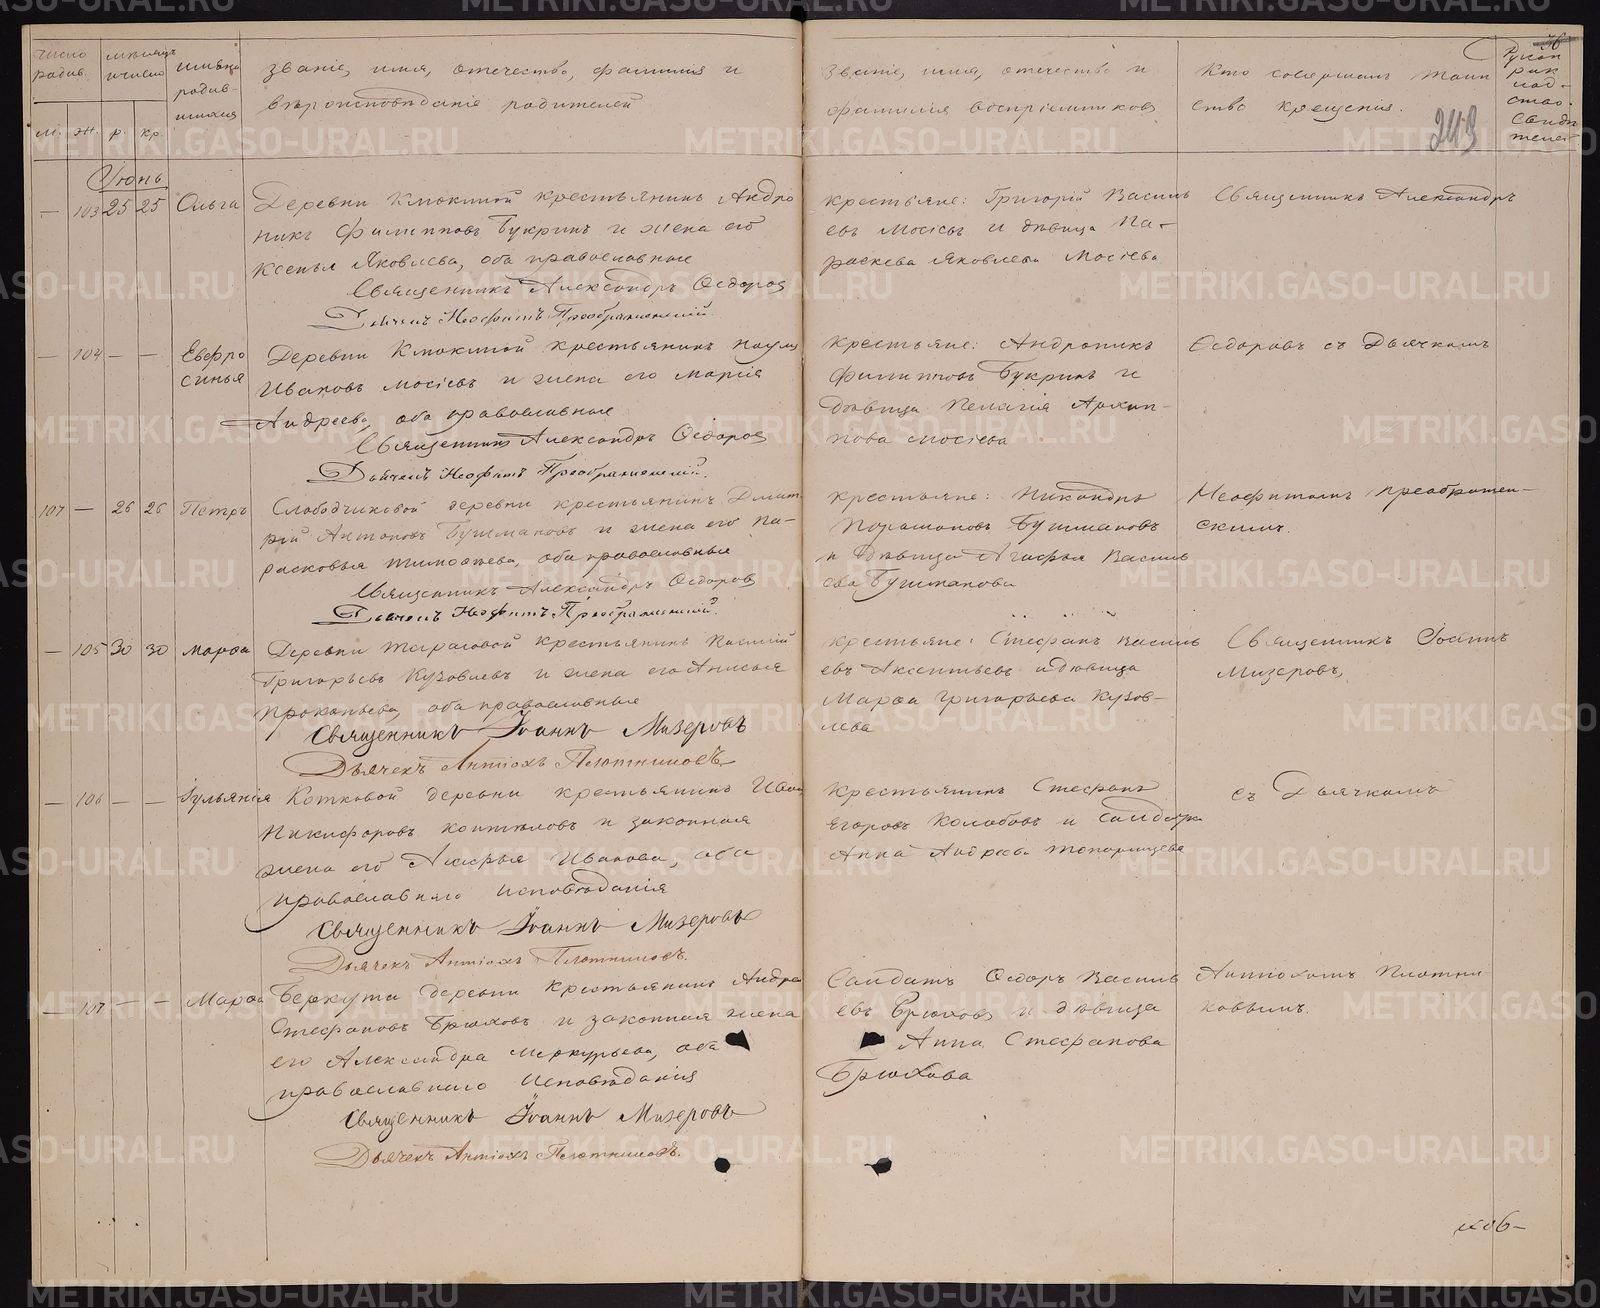 Число родив.
мѣсяцъ и число
имена родив-
шихся
званіе, имя, отечество, фамилія и
вѣроисповѣданіе родителей
Званіе, имя, отечество и
фамилія воспріемниковъ
Кто совершалъ таин
ство крещенія.
Рукоп
рик
лад-
ство.
Свидѣ
телей
36
243
м. ж. р. кр.
Іюнь
— 103 25 25 Ольга
Деревни Клюкиной крестьянинъ Андро
никъ Филипповъ Букринъ и жена его
Ксенья Яковлева, оба православные
Священникъ Александръ Ѳедоровъ
Дьячекъ Неофитъ Преображенскій.
крестьяне: Григорій Василь
евъ Мосіевъ и дѣвица Па-
раскева Яковлева Мосіева
Священникъ Александръ
— 104 — — Евфро
синья
Деревни Клюкиной крестьянинъ Наумъ
Ивановъ Мосіевъ и жена его Марія
Андреева, оба православные
Священникъ Александръ Ѳедоровъ
Дьячекъ Неофитъ Преображенскій.
крестьяне: Андроникъ
Филипповъ Букринъ и
дѣвица Пелагія Архип-
пова Мосіева
Ѳедоровъ съ Дьячкомъ
107 — 26 26 Петръ
Слободчиковой деревни крестьянинъ Дмит
рій Антоновъ Бушмановъ и жена его Па-
расковья Тимоѳеева, оба православные
Священникъ Александръ Ѳедоровъ
Дьячекъ Неофитъ Преображенскій.
крестьяне: Никандръ
Бушмановъ
и дѣвица Агафья Василь
ева Бушманова
Неофитомъ Преображен-
скимъ.
— 105 30 30 Марѳа
Деревни Тарасовой крестьянинъ Василій
Григорьевъ Кузовлевъ и жена его Анисья
Прокопьева, оба православные
Священникъ Іоаннъ Мизеровъ
Дьячекъ Антіохъ Плотниковъ
крестьяне: Стефанъ Василь
евъ Аксентьевъ и дѣвица
Марѳа Григорьева Кузов-
лева
Священникъ Іоаннъ
Мизеровъ,
— 106 — — Іульянія
Котковой деревни крестьянинъ Иванъ
Никифоровъ Коптяловъ и законная
жена его Агафья Иванова, оба
православнаго исповѣданія
Священникъ Іоаннъ Мизеровъ
Дьячекъ Антіохъ Плотниковъ.
крестьянинъ Стефанъ
Егоровъ Колобовъ и солдатка
Анна Андреева Топорищева
съ Дьячкомъ
— 107 — — Марѳа
Беркута деревни крестьянинъ Андрей
Стефановъ Брюховъ и законная жена
его Александра Меркурьева, оба
православнаго исповѣданія
Священникъ Іоаннъ Мизеровъ
Дьячекъ Антіохъ Плотниковъ.
Солдатъ Ѳедоръ Василь
евъ Брюховъ и дѣвица
Анна Стефанова
Брюхова
Антіохомъ Плотни
ковымъ.
METRIKI.GASO-URAL.RU